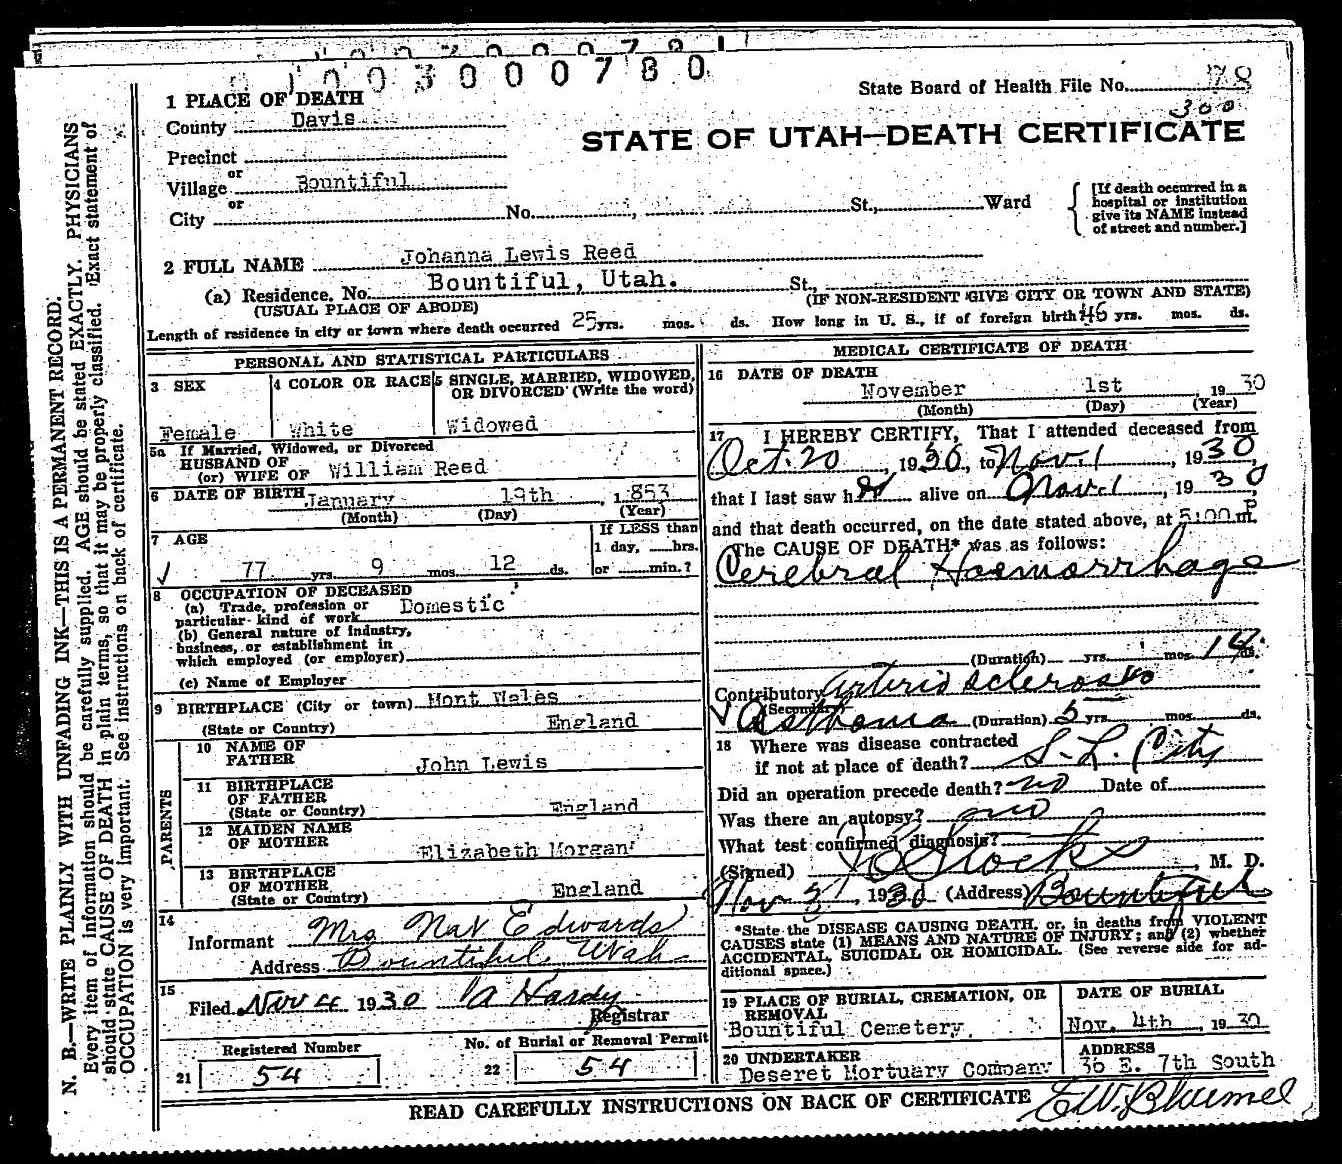 1003000780
State Board of Health File No. 78
300
STATE OF UTAH—DEATH CERTIFICATE
1 PLACE OF DEATH
County Davis
Precinct
or
Village Bountiful
or
City No. St., Ward
[If death occurred in a hospital or institution give its NAME instead of street and number.]
2 FULL NAME Johanna Lewis Reed
(a) Residence, No. Bountiful, Utah. St.,
(USUAL PLACE OF ABODE) (IF NON-RESIDENT GIVE CITY OR TOWN AND STATE)
Length of residence in city or town where death occurred 25 yrs. mos. ds. How long in U. S., if of foreign birth 46 yrs. mos. ds.
PERSONAL AND STATISTICAL PARTICULARS
3 SEX
Female
4 COLOR OR RACE
White
5 SINGLE, MARRIED, WIDOWED,
OR DIVORCED (Write the word)
Widowed
5a If Married, Widowed, or Divorced
HUSBAND OF
(or) WIFE OF William Reed
6 DATE OF BIRTH January 19th, 1853
(Month) (Day) (Year)
7 AGE
77 yrs. 9 mos. 12 ds.
If LESS than
1 day, hrs.
or min.?
8 OCCUPATION OF DECEASED
(a) Trade, profession or
particular kind of work Domestic
(b) General nature of industry,
business, or establishment in
which employed (or employer)
(c) Name of Employer
9 BIRTHPLACE (City or town) Mont Wales
(State or Country) England
PARENTS
10 NAME OF
FATHER John Lewis
11 BIRTHPLACE
OF FATHER
(State or Country) England
12 MAIDEN NAME
OF MOTHER Elizabeth Morgan
13 BIRTHPLACE
OF MOTHER
(State or Country) England
14
Informant Mrs Nat Edwards
Address Bountiful Utah
15
Filed Nov 4 1930 A Hardy
Registrar
Registered Number
21 54
No. of Burial or Removal Permit
22 54
MEDICAL CERTIFICATE OF DEATH
16 DATE OF DEATH
November 1st 1930
(Month) (Day) (Year)
17 I HEREBY CERTIFY, That I attended deceased from
Oct. 20, 1930, to Nov. 1, 1930
that I last saw her alive on Nov. 1, 1930
and that death occurred, on the date stated above, at 5:00 P m.
The CAUSE OF DEATH* was as follows:
Cerebral Haemorrhage
(Duration) yrs. mos. 14 ds.
Contributory Arterio sclerosis
(Secondary)
Asthma (Duration) 5 yrs. mos. ds.
18 Where was disease contracted
if not at place of death? S. L. City
Did an operation precede death? no Date of
Was there an autopsy? no
What test confirmed diagnosis?
(Signed) Stocks, M. D.
Nov 3, 1930 (Address) Bountiful
*State the DISEASE CAUSING DEATH, or, in deaths from VIOLENT
CAUSES state (1) MEANS AND NATURE OF INJURY; and (2) whether
ACCIDENTAL, SUICIDAL OR HOMICIDAL. (See reverse side for ad-
ditional space.)
19 PLACE OF BURIAL, CREMATION, OR
REMOVAL
Bountiful Cemetery.
DATE OF BURIAL
Nov. 4th, 1930
20 UNDERTAKER
Deseret Mortuary Company
ADDRESS
36 E. 7th South
READ CAREFULLY INSTRUCTIONS ON BACK OF CERTIFICATE
E.W. Bluemel
N. B.—WRITE PLAINLY WITH UNFADING INK—THIS IS A PERMANENT RECORD.
Every item of information should be carefully supplied. AGE should be stated EXACTLY. PHYSICIANS
should state CAUSE OF DEATH in plain terms, so that it may be properly classified. Exact statement of
OCCUPATION is very important. See instructions on back of certificate.